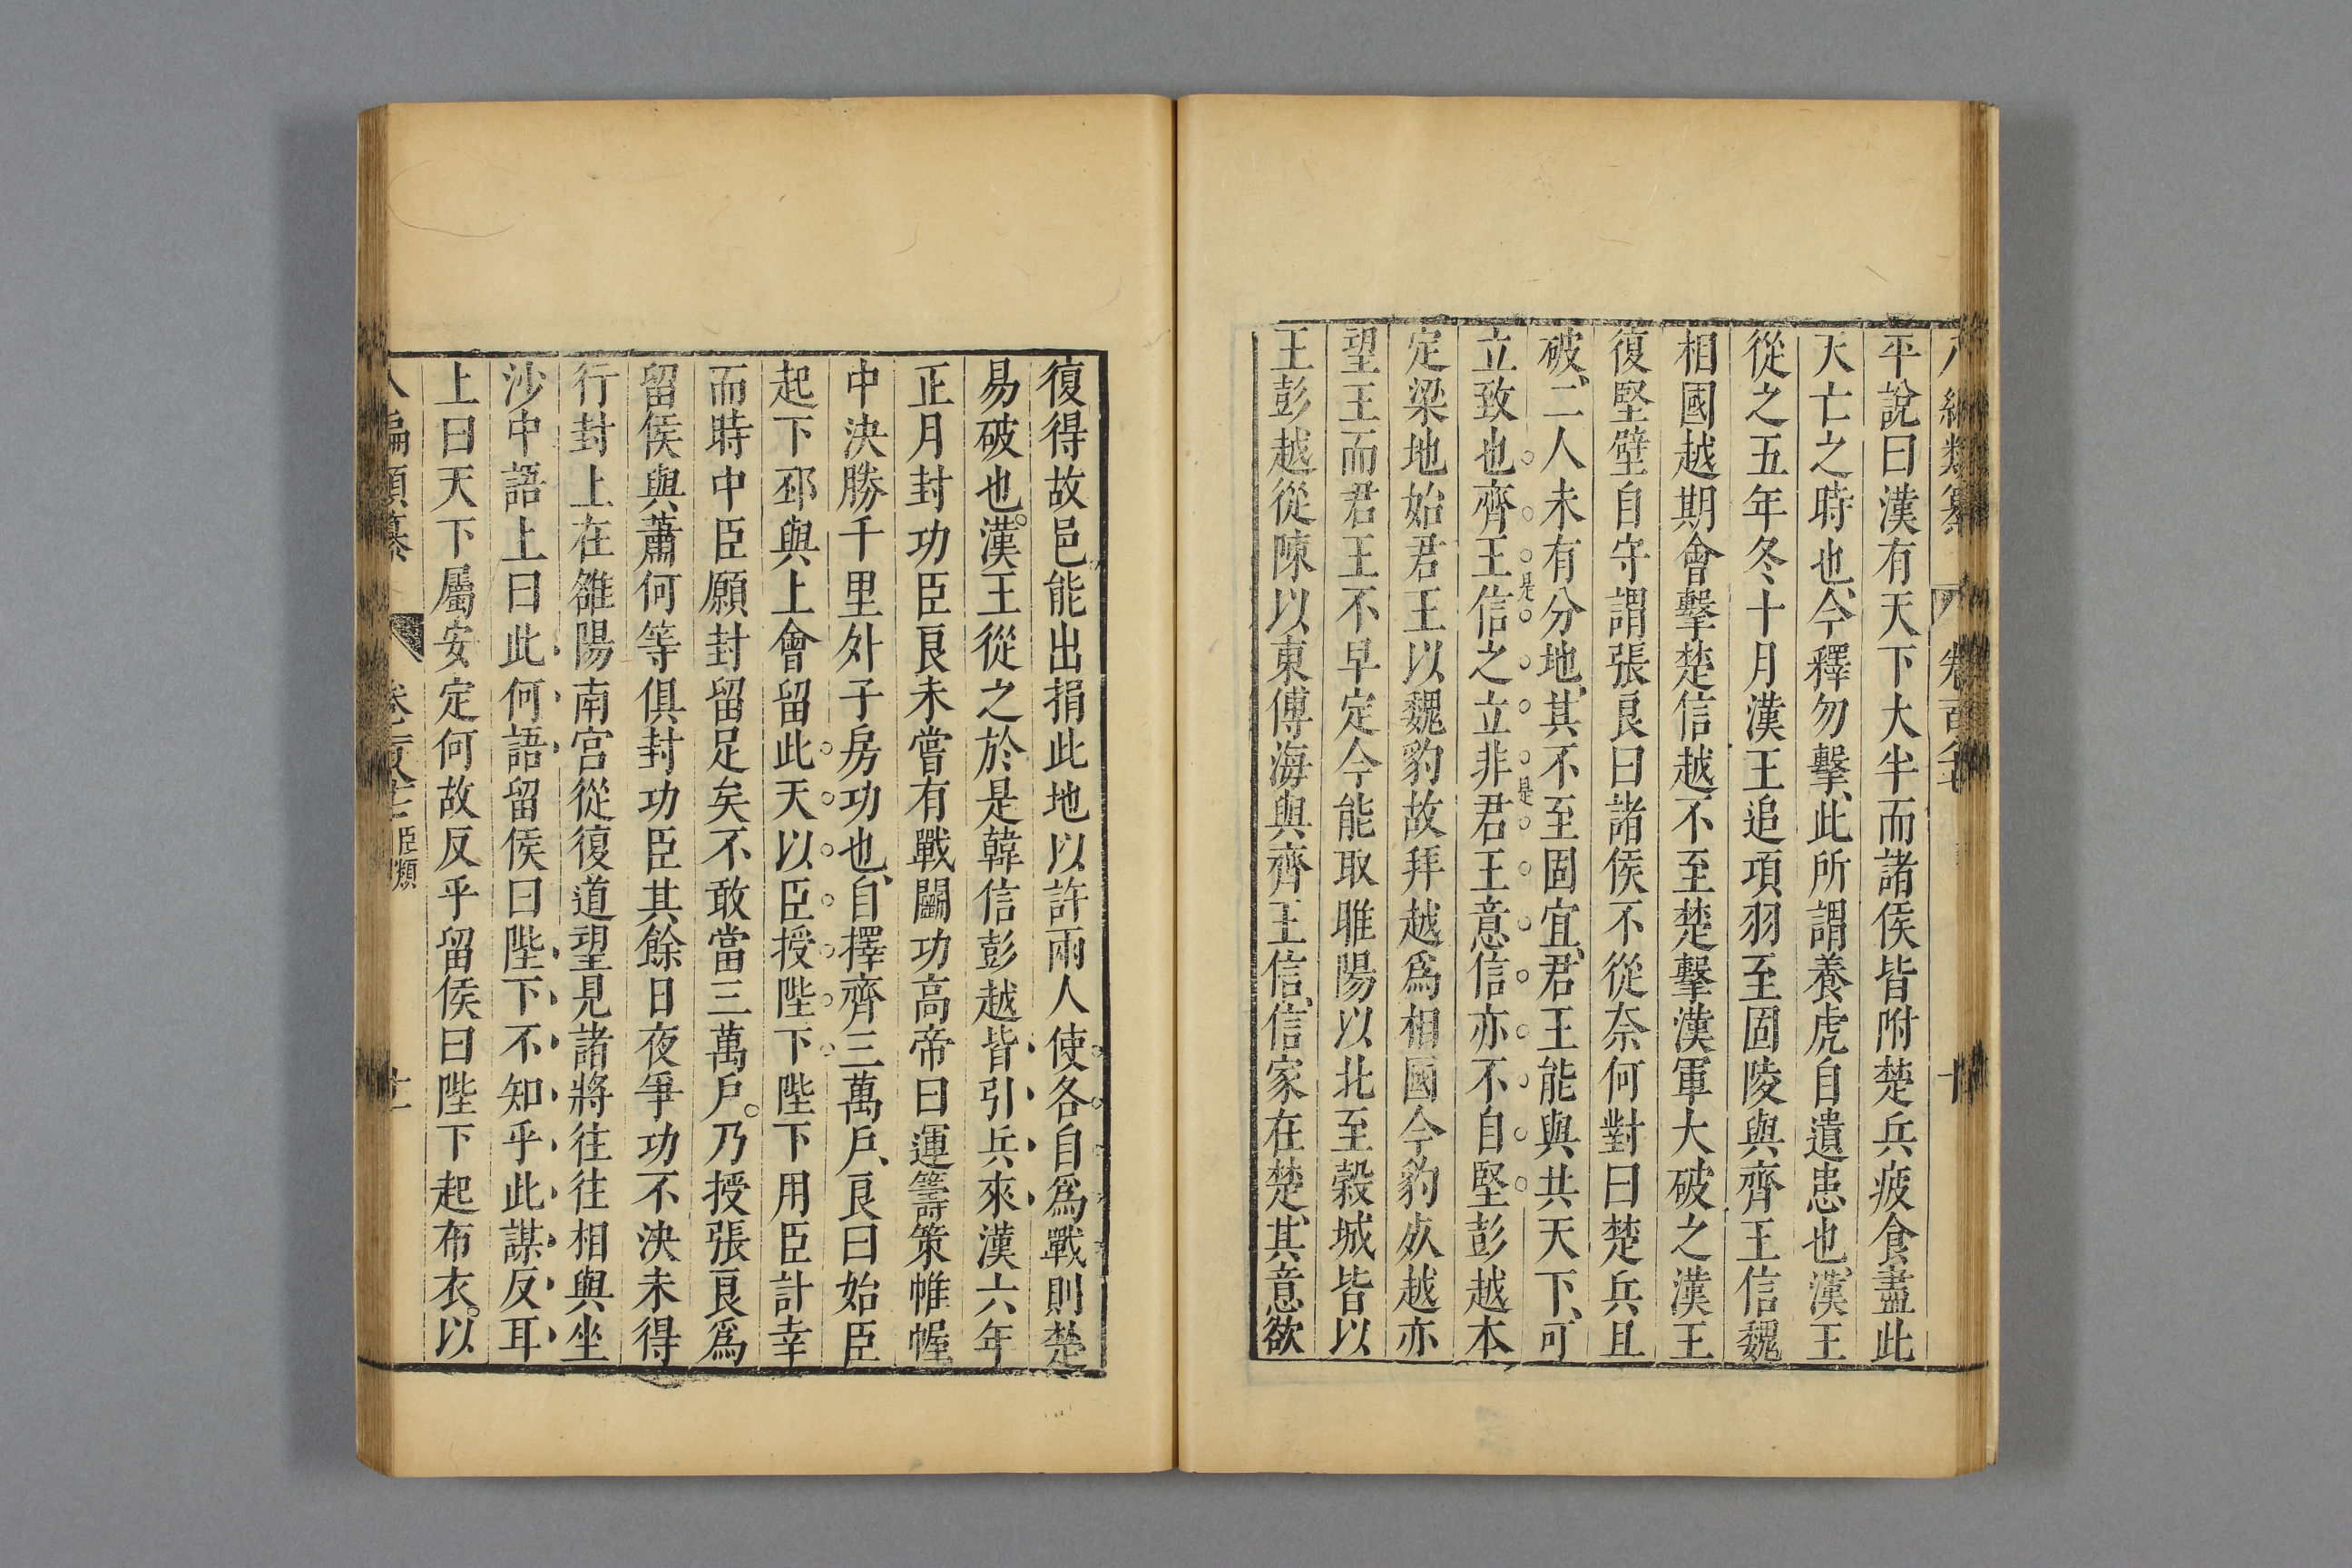 平說曰漢有天下大半而諸侯皆附楚兵疲食盡此
天亡之時也今釋勿擊此所謂養虎自遺患也漢王
從之五年冬十月漢王追項羽至固陵與齊王信魏
相國越期會擊楚信越不至楚擊漢軍大破之漢王
復堅壁自守謂張良曰諸侯不從奈何對曰楚兵且
破二人未有分地其不至固宜君王能與共天下可
立致也齊王信之立非君王意信亦不自堅彭越本
是
是
定梁地始君王以魏豹故拜越爲相國今豹死越亦
望王而君王不早定今能取睢陽以北至穀城皆以
王彭越從陳以東傅海與齊王信信家在楚其意欲
復得故邑能出捐此地以許兩人使各自爲戰則楚
易破也漢王從之於是韓信彭越皆引兵來漢六年
正月封功臣良未嘗有戰鬭功高帝曰運籌策帷幄
中決勝千里外子房功也自擇齊三萬戶良曰始臣
起下邳與上會留此天以臣授陛下陛下用臣計幸
而時中臣願封留足矣不敢當三萬戶乃授張良爲
留侯與蕭何等俱封功臣其餘日夜爭功不決未得
行封上在雒陽南宮從復道望見諸將往往相與坐
沙中語上曰此何語留侯曰陛下不知乎此謀反耳
上曰天下屬安定何故反乎留侯曰陛下起布衣以
八編類纂
臣類